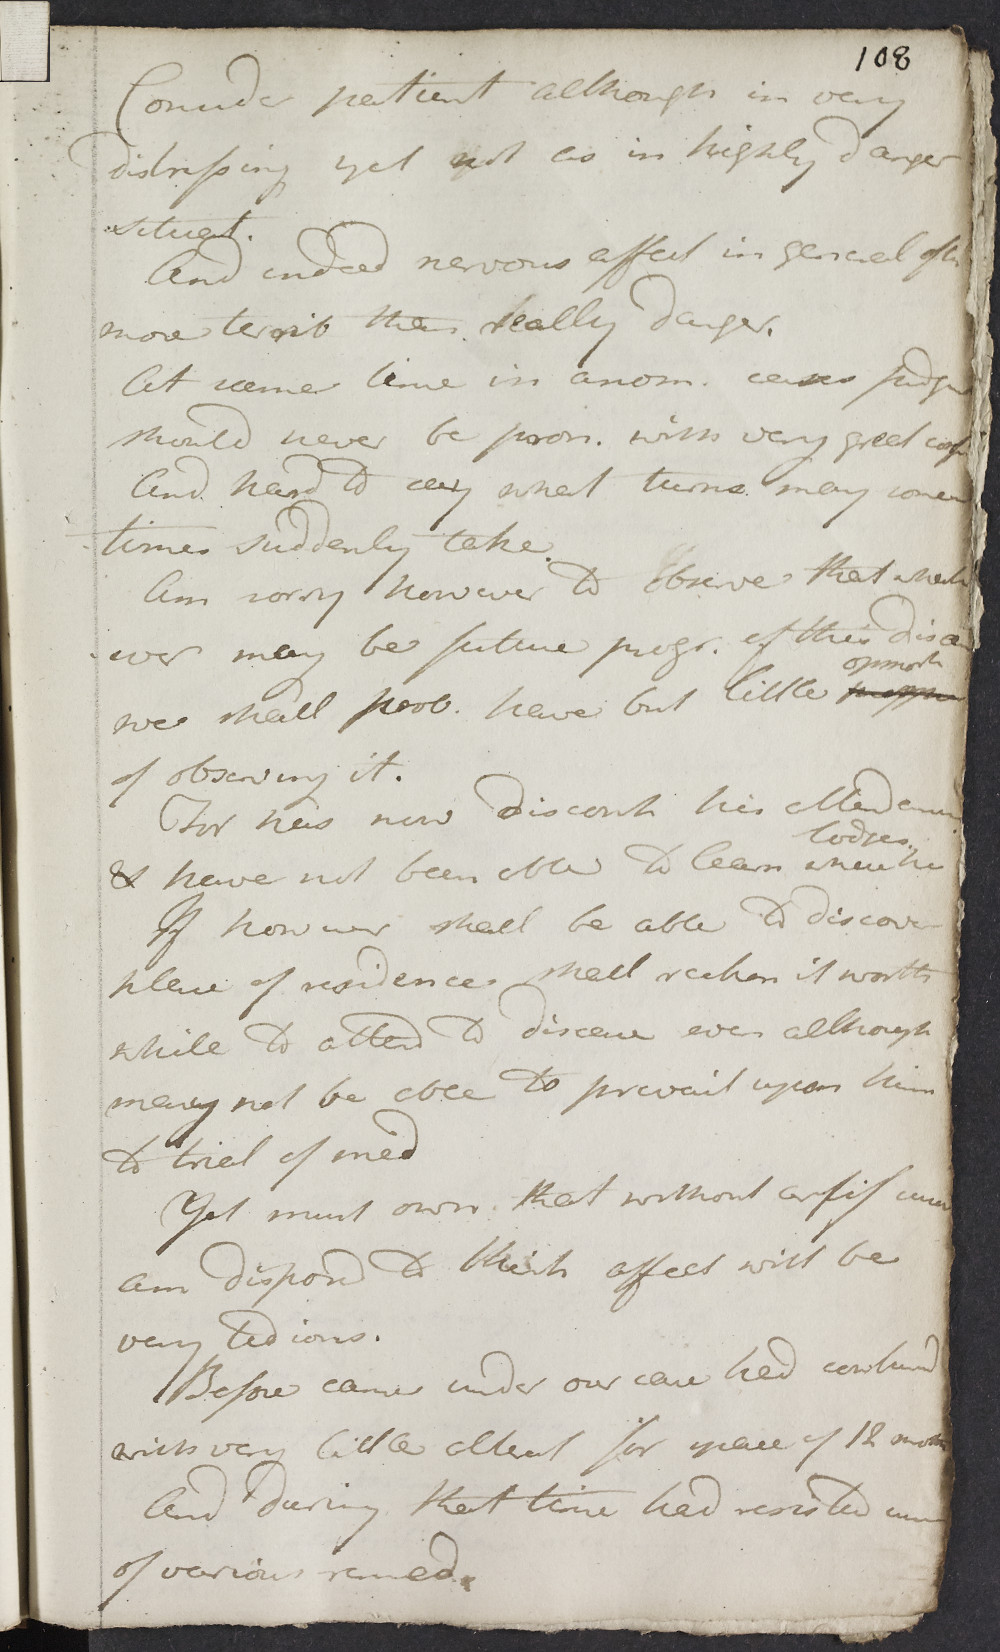 108
Consider patient although in very
distressing yet not as in highly danger
situat.
And indeed nervous affect in general often
more terrib than really danger.
At same time in anom. cases judgm
should never be pron. with very great conf
And hard to say what turns may some
times suddenly take.
Am sorry however to observe that whats
ever may be future progr. of this disea
opport
we shall prob. have but little
of observing it.
For has now discont his attendance
lodges.
& have not been able to learn where he
If however shall be able to discover
place of residence shall reckon it worth
while to attend to disease even although
may not be able to prevail upon him
to trial of med
Yet must own that without assis
am disposed to think affect will be
very tedious.
Before came under our care had continued
with very little alterat for space of 12 months
And during that time had resisted
of various remed.